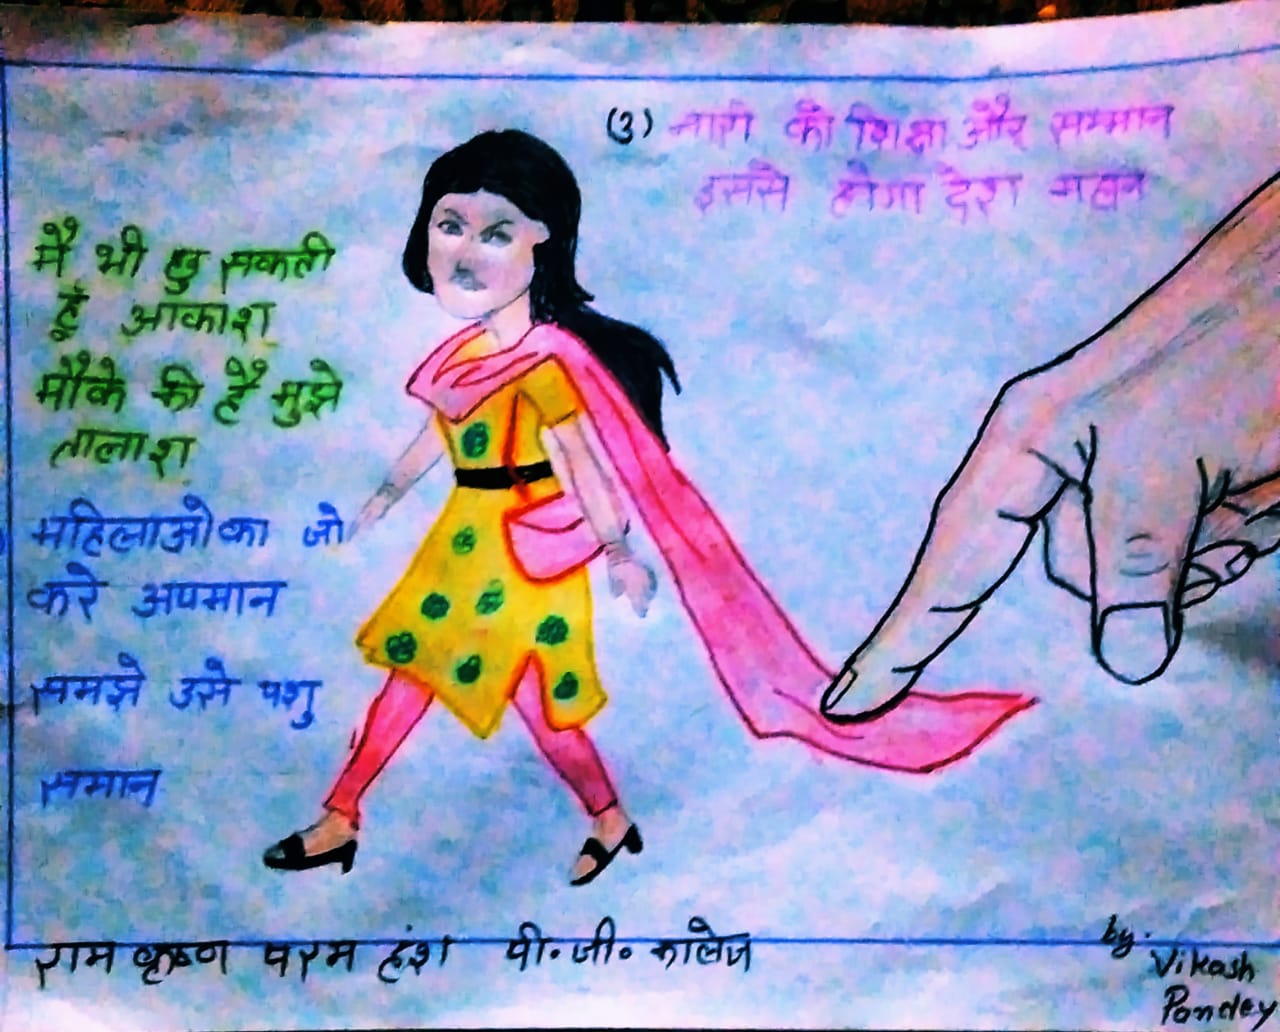 (3) नारी को शिक्षा और सम्मान
इससे होगा देश महान
मैं भी छु सकती
हूं आकाश
मौके की है मुझे
तालाश
महिलाओ का जो
करे अपमान
समझे उसे पशु
समान
राम कृष्ण परम हंश पी॰ जी॰ कालेज
by.
Vikash
Pandey